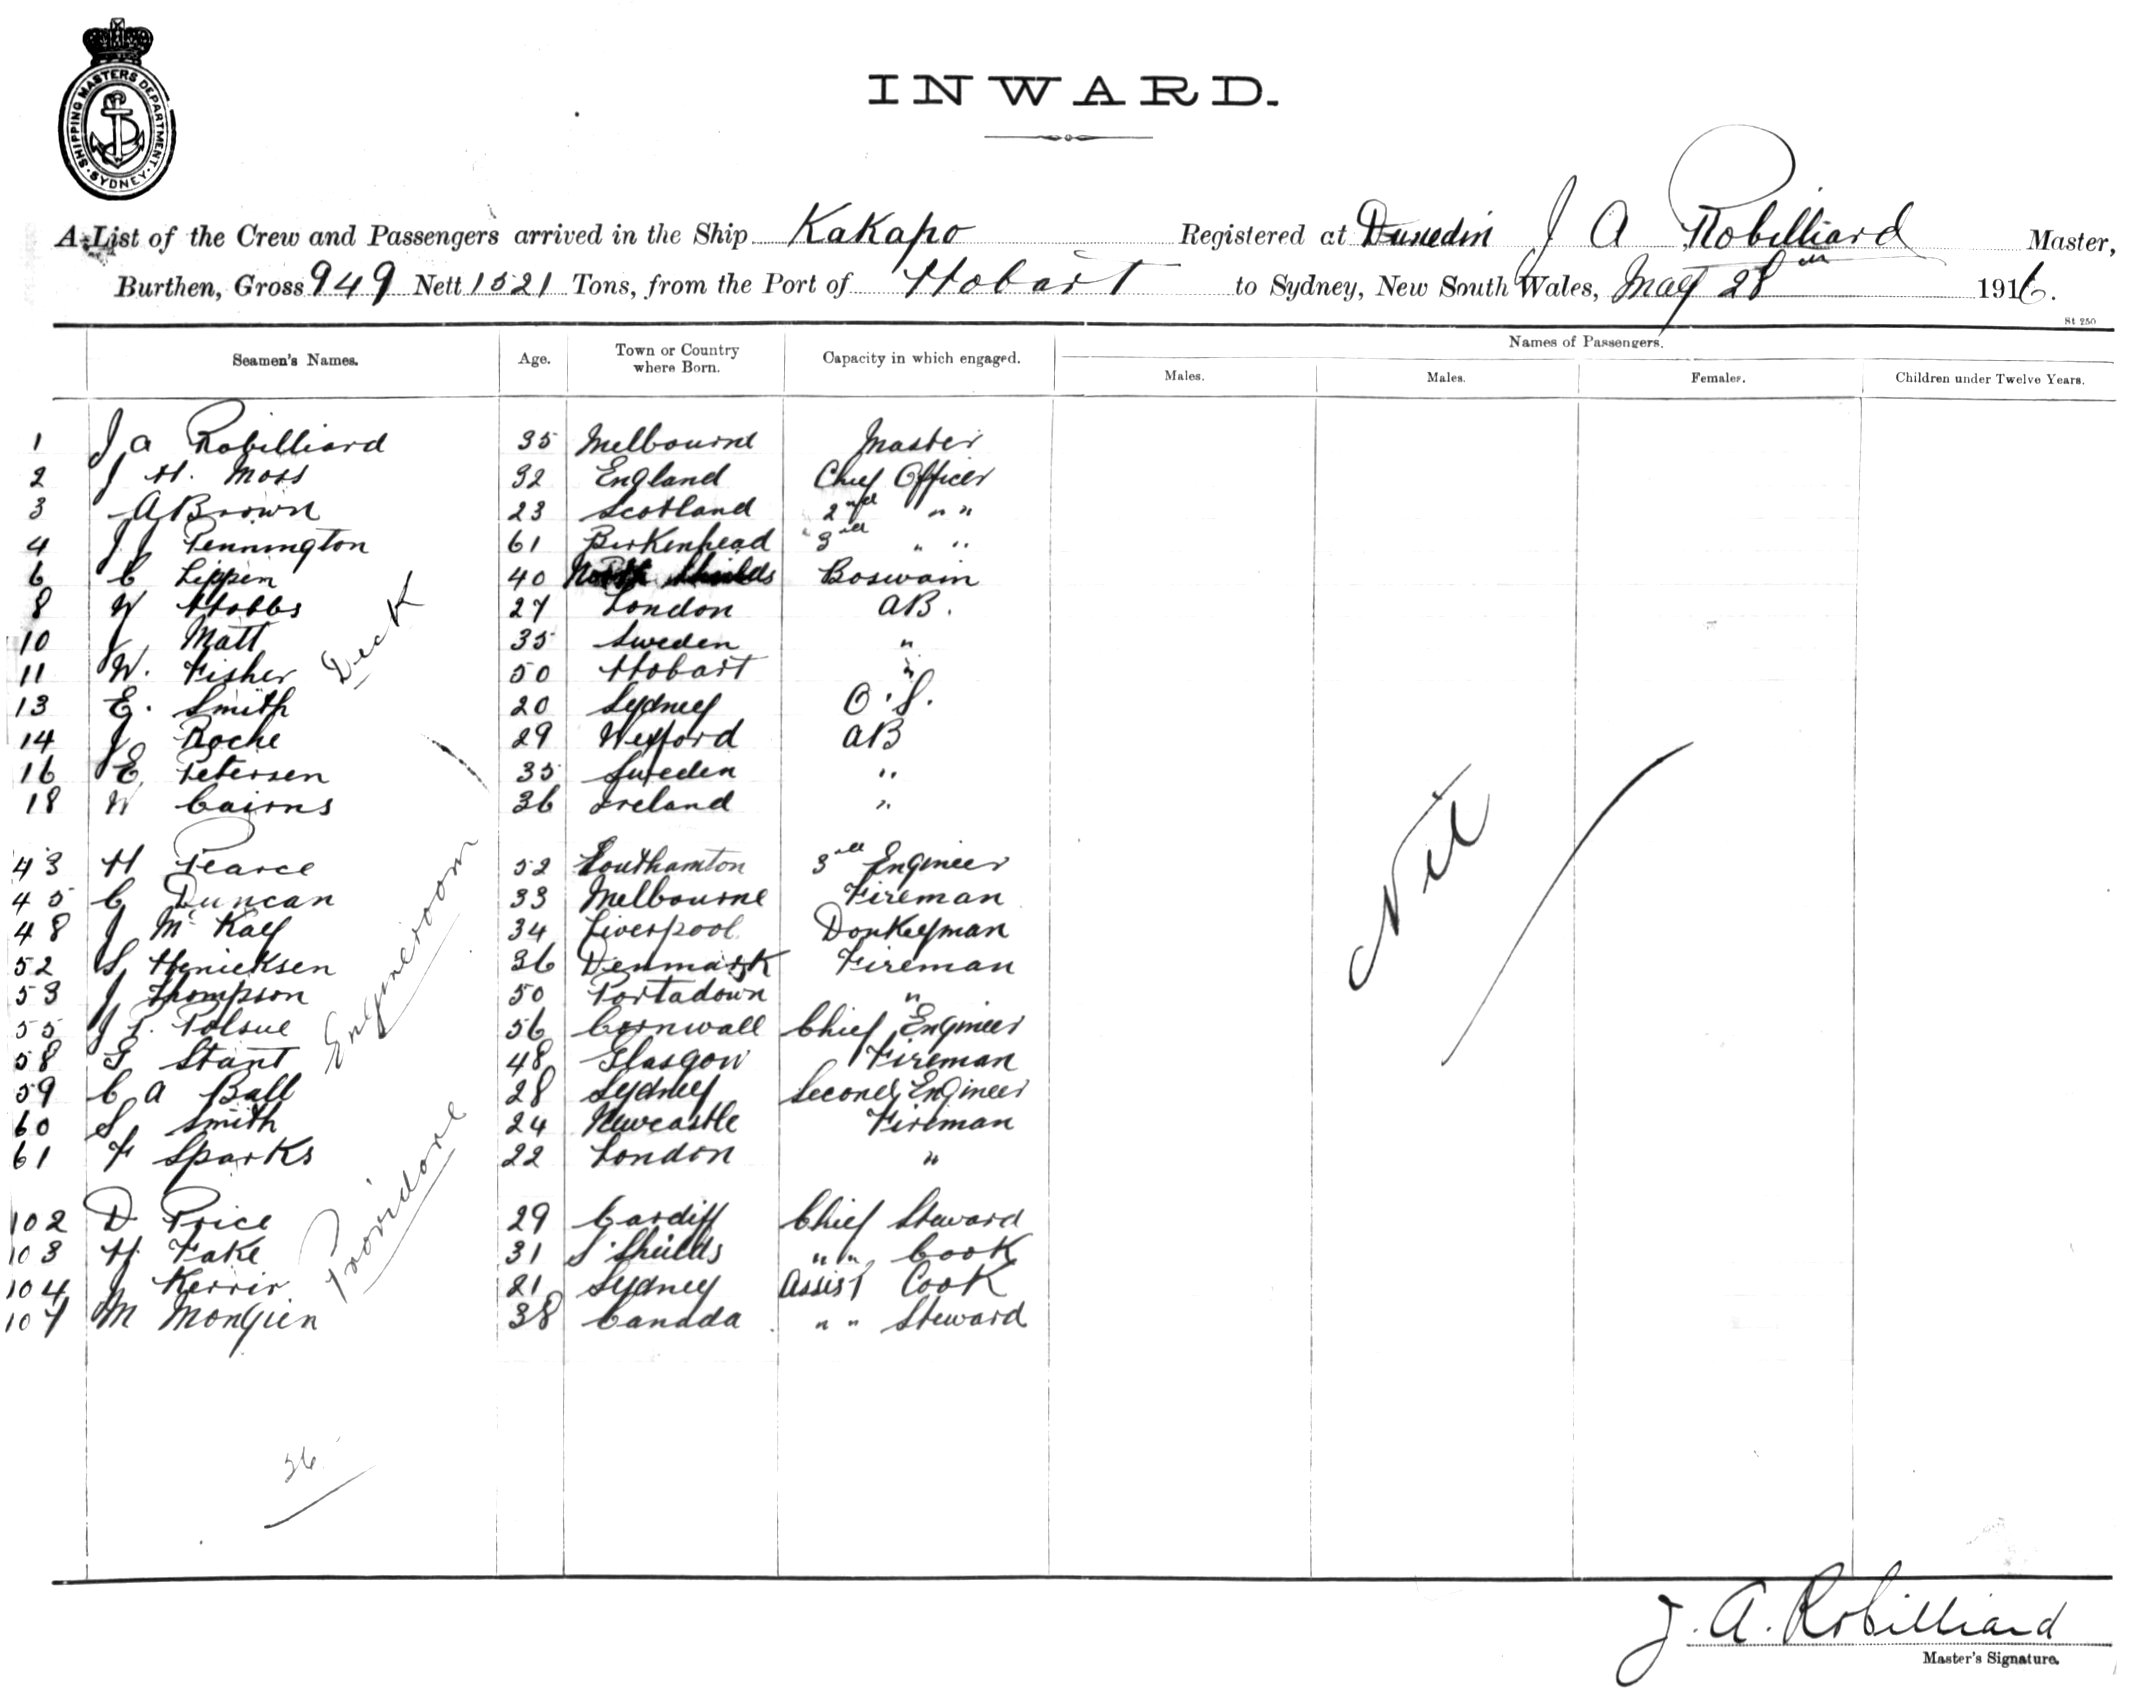 SHIPPING MASTERS DEPARTMENT
SYDNEY
INWARD.
A List of the Crew and Passengers arrived in the Ship Kakapo Registered at Dunedin J A Robilliard Master,
Burthen, Gross 949 Nett 1521 Tons, from the Port of Hobart to Sydney, New South Wales, May 28th 1916.
St 250
Names of Passengers.
Seamen's Names. Age. Town or Country where Born. Capacity in which engaged. Males. Males. Females. Children under Twelve Years.
1 J A Robilliard 35 Melbourne Master
2 J H. Moss 32 England Chief Officer
3 A Brown 23 Scotland 2nd " "
4 J J Pennington 61 Birkenhead 3rd " "
6 C Lippen 40 North Shields Boswain
8 W Hobbs 27 London AB.
10 J Matt 35 Sweden "
11 W. Fisher 50 Hobart "
Deck
13 E. Smith 20 Sydney O.S.
14 J Roche 29 Wexford AB
16 E. Petersen 35 Sweden "
18 W Cairns 36 Ireland "
43 H Pearce 52 Southamton 3rd Engineer
45 C Duncan 33 Melbourne Fireman
48 J McKay 34 Liverpool Donkeyman
52 S Henicksen 36 Denmark Fireman
53 J Thompson 50 Portadown "
55 J P. Polsue 56 Cornwall Chief Engineer
Engineroom
58 G Stant 48 Glasgow Fireman
59 C A Ball 28 Sydney Second Engineer
60 S Smith 24 Newcastle Fireman
61 F Sparks 22 London "
102 D Price 29 Cardiff Chief Steward
103 H. Fake 31 S. Shields " " Cook
104 J Kerrir 21 Sydney Assist Cook
107 M Mongien 38 Canada " " Steward
Providore
Nil
26
J. A. Robilliard
Master's Signature.